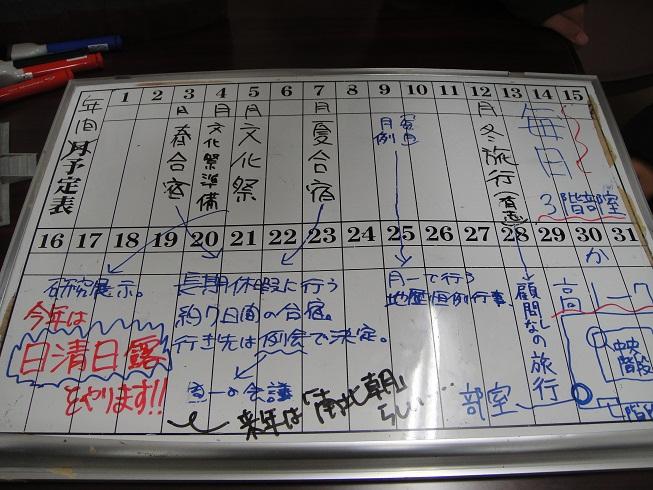 年間 月予定表
1 2 3 4 5 6 7 8 9 10 11 12 13 14 15
3月 春合宿
4月 文化祭準備
5月 文化祭
7月 夏合宿
月例
12月 冬旅行 有志
毎日
3階部室
16 17 18 19 20 21 22 23 24 25 26 27 28 29 30 31
研究展示。
今年は
日清日露
をやります!!
長期休暇に行う
約7日間の合宿。
行き先は例会で決定。
週一の会議
来年は「南北朝」
らしい…
月一で行う
地歴恒例行事、
顧問なしの旅行
か
高一-7
中央
階段
部室
七階